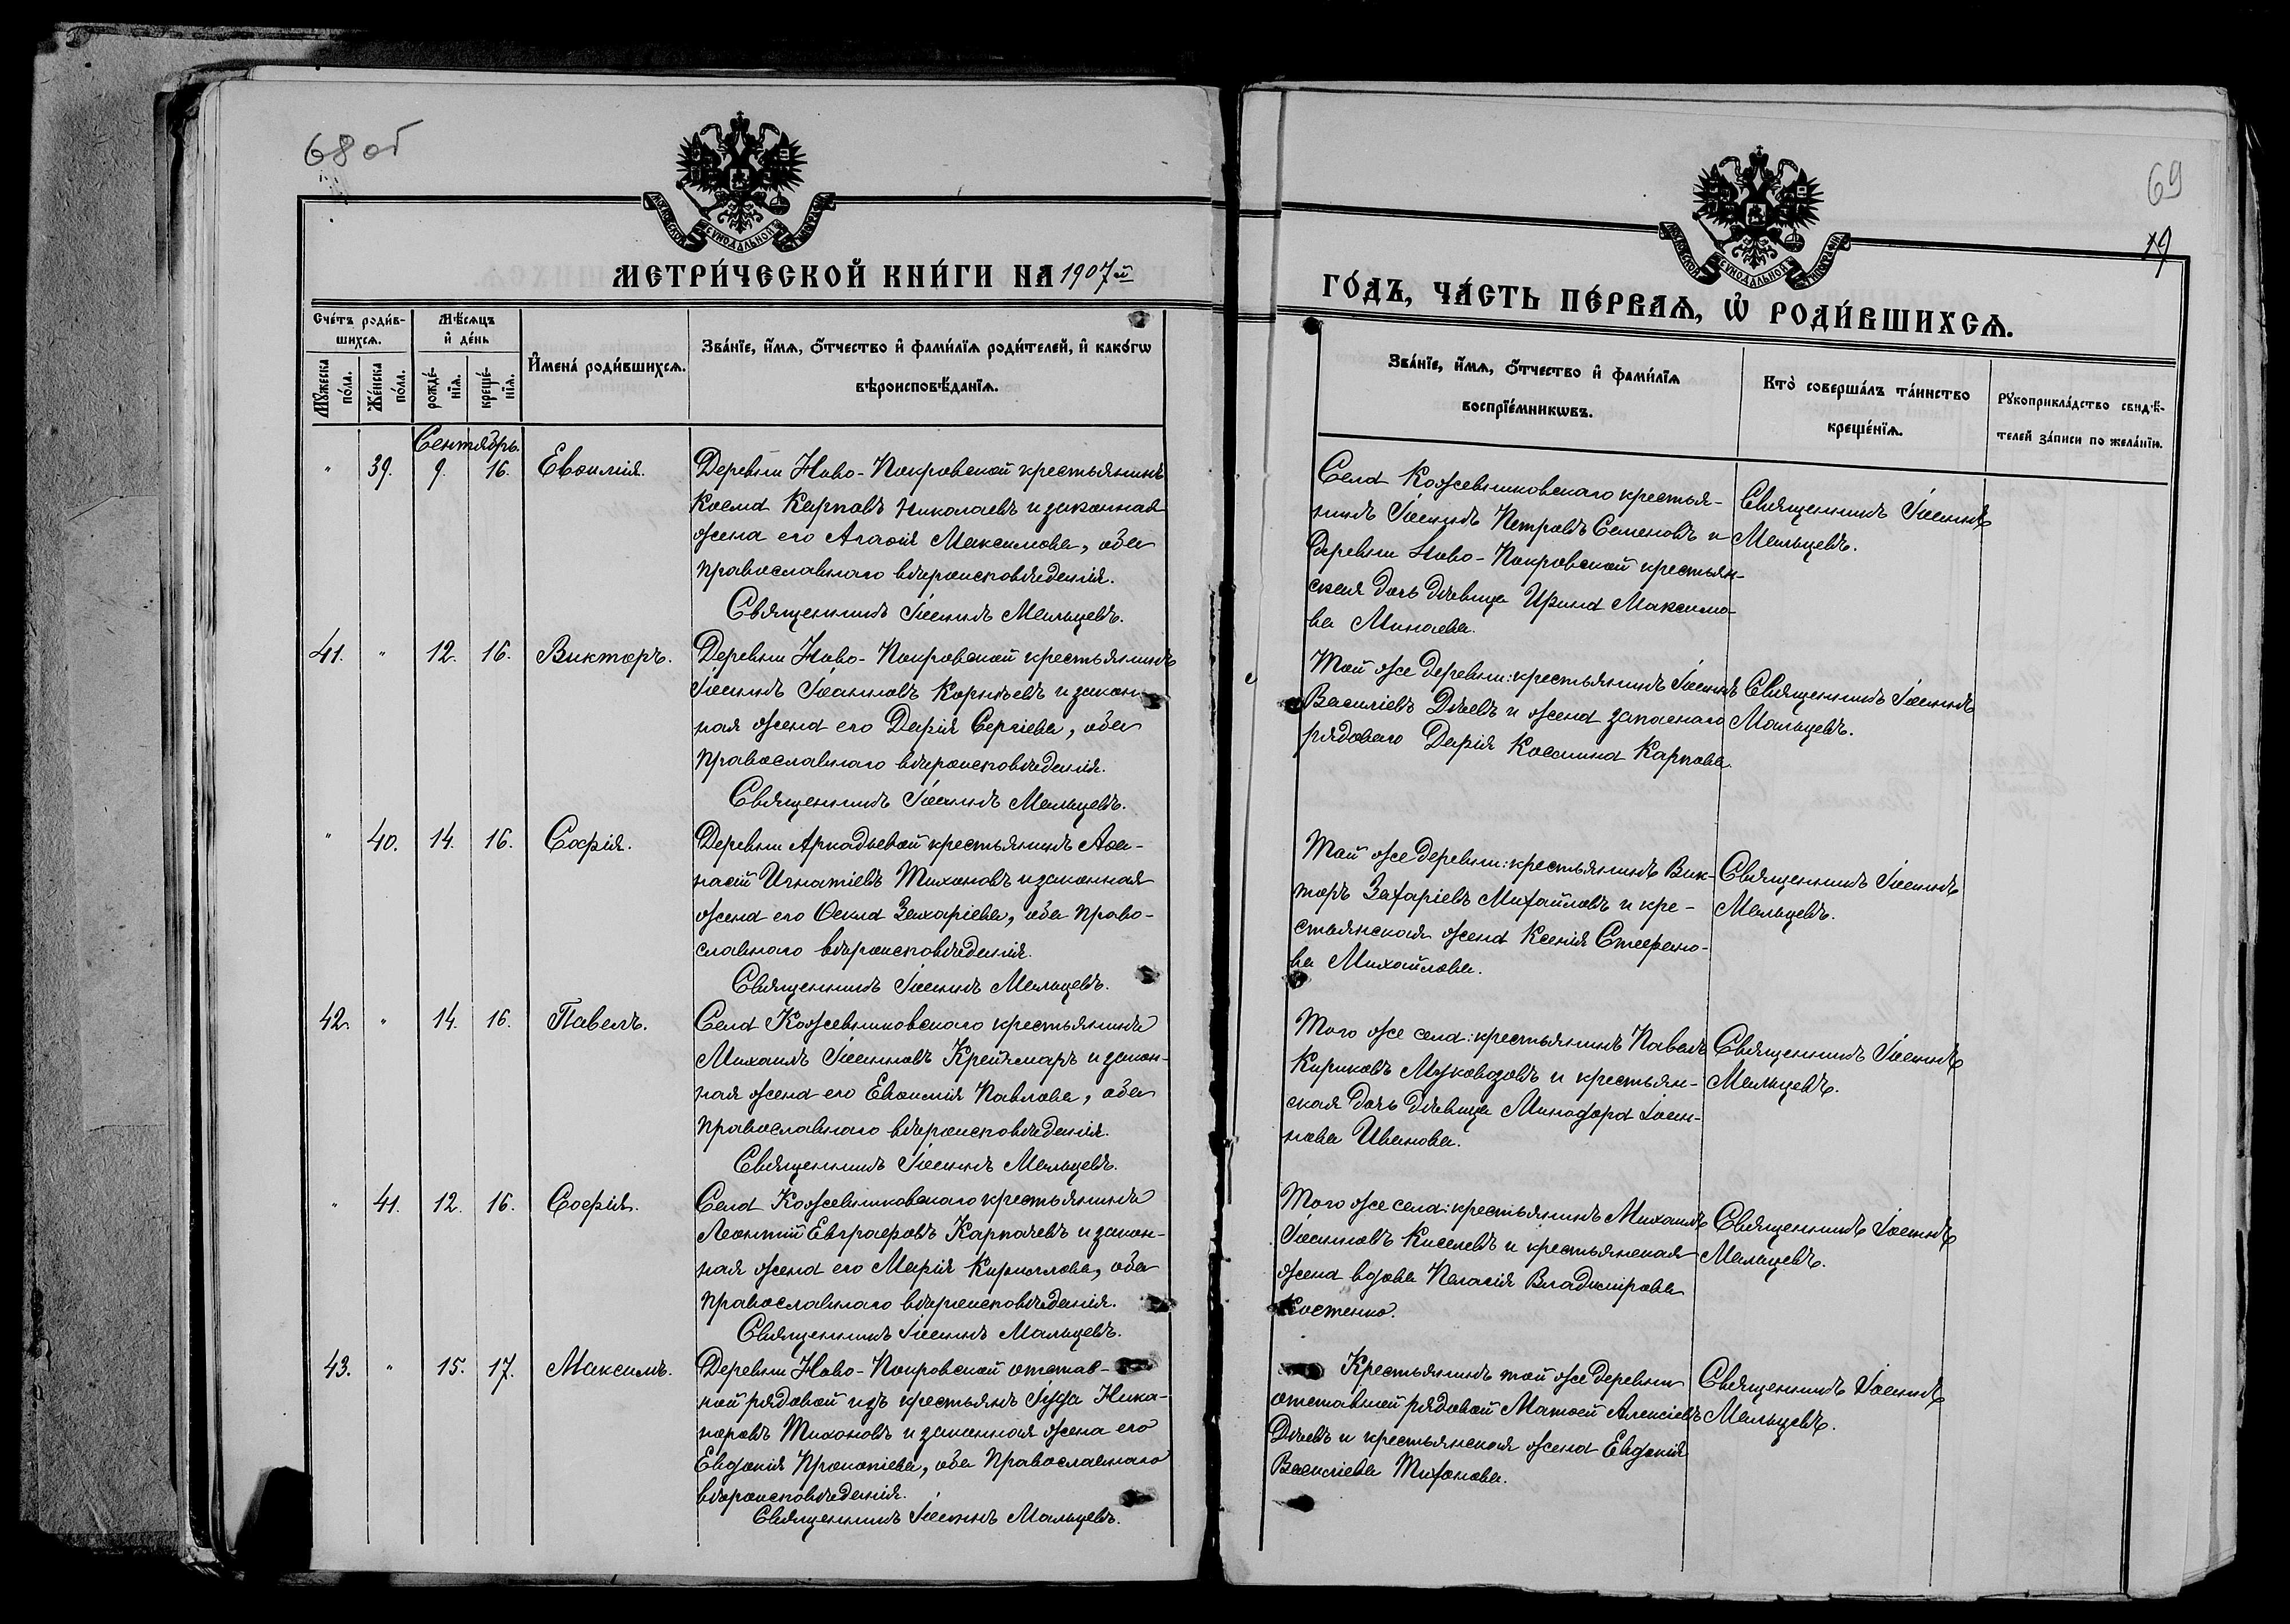 68 об
69
19
МОСКОВСКОЙ СѴНОДАЛЬНОЙ ТИПОГРАФІИ
МОСКОВСКОЙ СѴНОДАЛЬНОЙ ТИПОГРАФІИ
МЕТРИ́ЧЕСКОЙ КНИ́ГИ НА 1907й
ГО́ДЪ, ЧА́СТЬ ПЕ́РВАѦ, Ѡ҆ РОДИ́ВШИХСѦ.
Сче́тъ роди́в-
шихсѧ.
Мꙋжеска по́ла.
Же́нска по́ла.
Мѣ́сѧцъ
и҆ де́нь
рожде́-
нїѧ.
креще́-
нїѧ.
И҆мена̀ роди́вшихсѧ.
Зва́нїе, и҆́мѧ, ѻ҆́тчество и҆ фами́лїѧ роди́телей, и҆ како́гѡ
вѣроисповѣ́данїѧ.
Зва́нїе, и҆́мѧ, ѻ҆́тчество и҆ фами́лїѧ
воспрїе́мникѡвъ.
Кто̀ соверша́лъ та́инство
креще́нїѧ.
Рꙋкоприкла́дство свидѣ́-
телей за́писи по жела́нїю.
Сентябрь.
" 39. 9. 16. Евѳимія.
Деревни Ново-Покровской крестьянинъ
Косма Карповъ Николаевъ и законная
жена его Агаѳія Максимова, оба
православнаго вѣроисповѣданія.
Священникъ Іоаннъ Мальцевъ.
Села Кожевниковскаго крестья-
нинъ Іоаннъ Петровъ Семеновъ и
деревни Ново-Покровской крестьян-
ская дочь дѣвица Ирина Максимо-
ва Минаева.
Священникъ Іоаннъ
Мальцевъ.
41. " 12. 16. Викторъ.
Деревни Ново-Покровской крестьянинъ
Іоаннъ Іоанновъ Корнѣевъ и закон-
ная жена его Дарія Сергіева, оба
православнаго вѣроисповѣданія.
Священникъ Іоаннъ Мальцевъ.
Той же деревни: крестьянинъ Іоаннъ
Василіевъ Дѣевъ и жена запаснаго
рядоваго Дарія Космина Карпова.
Священникъ Іоаннъ
Мальцевъ.
" 40. 14. 16. Софія.
Деревни Аркадьевой крестьянинъ Аѳа-
насій Игнатіевъ Тихоновъ и законная
жена его Ѳекла Захаріева, оба право-
славнаго вѣроисповѣданія.
Священникъ Іоаннъ Мальцевъ.
Той же деревни: крестьянинъ Вик-
торъ Захаріевъ Михайловъ и кре-
стьянская жена Ксенія Стефано-
ва Михайлова.
Священникъ Іоаннъ
Мальцевъ.
42. " 14. 16. Павелъ.
Села Кожевниковскаго крестьянинъ
Михаилъ Іоанновъ Крейемаръ и закон-
ная жена его Евѳимія Павлова, оба
православнаго вѣроисповѣданія.
Священникъ Іоаннъ Мальцевъ.
Того же села: крестьянинъ Павелъ
Кириковъ Муковозовъ и крестьян-
ская дочь дѣвица Минодора Іоан-
нова Иванова.
Священникъ Іоаннъ
Мальцевъ.
" 41. 12. 16. Софія.
Села Кожевниковскаго крестьянинъ
Леонтій Евграфовъ Карпачевъ и закон-
ная жена его Марія Кириллова, оба
православнаго вѣроисповѣданія.
Священникъ Іоаннъ Мальцевъ.
Того же села: крестьянинъ Михаилъ
Іоанновъ Киселевъ и крестьянская
жена вдова Пелагія Владимірова
Костенко.
Священникъ Іоаннъ
Мальцевъ.
43. " 15. 17. Максимъ.
Деревни Ново-Покровской отстав-
ной рядовой изъ крестьянъ Іуда Ника-
норовъ Тихоновъ и законная жена его
Евдокія Прокопіева, оба Православнаго
вѣроисповѣданія.
Священникъ Іоаннъ Мальцевъ.
Крестьянинъ той же деревни
отставной рядовой Матѳей Алексіевъ
Дѣевъ и крестьянская жена Евдокія
Василіева Тихонова.
Священникъ Іоаннъ
Мальцевъ.